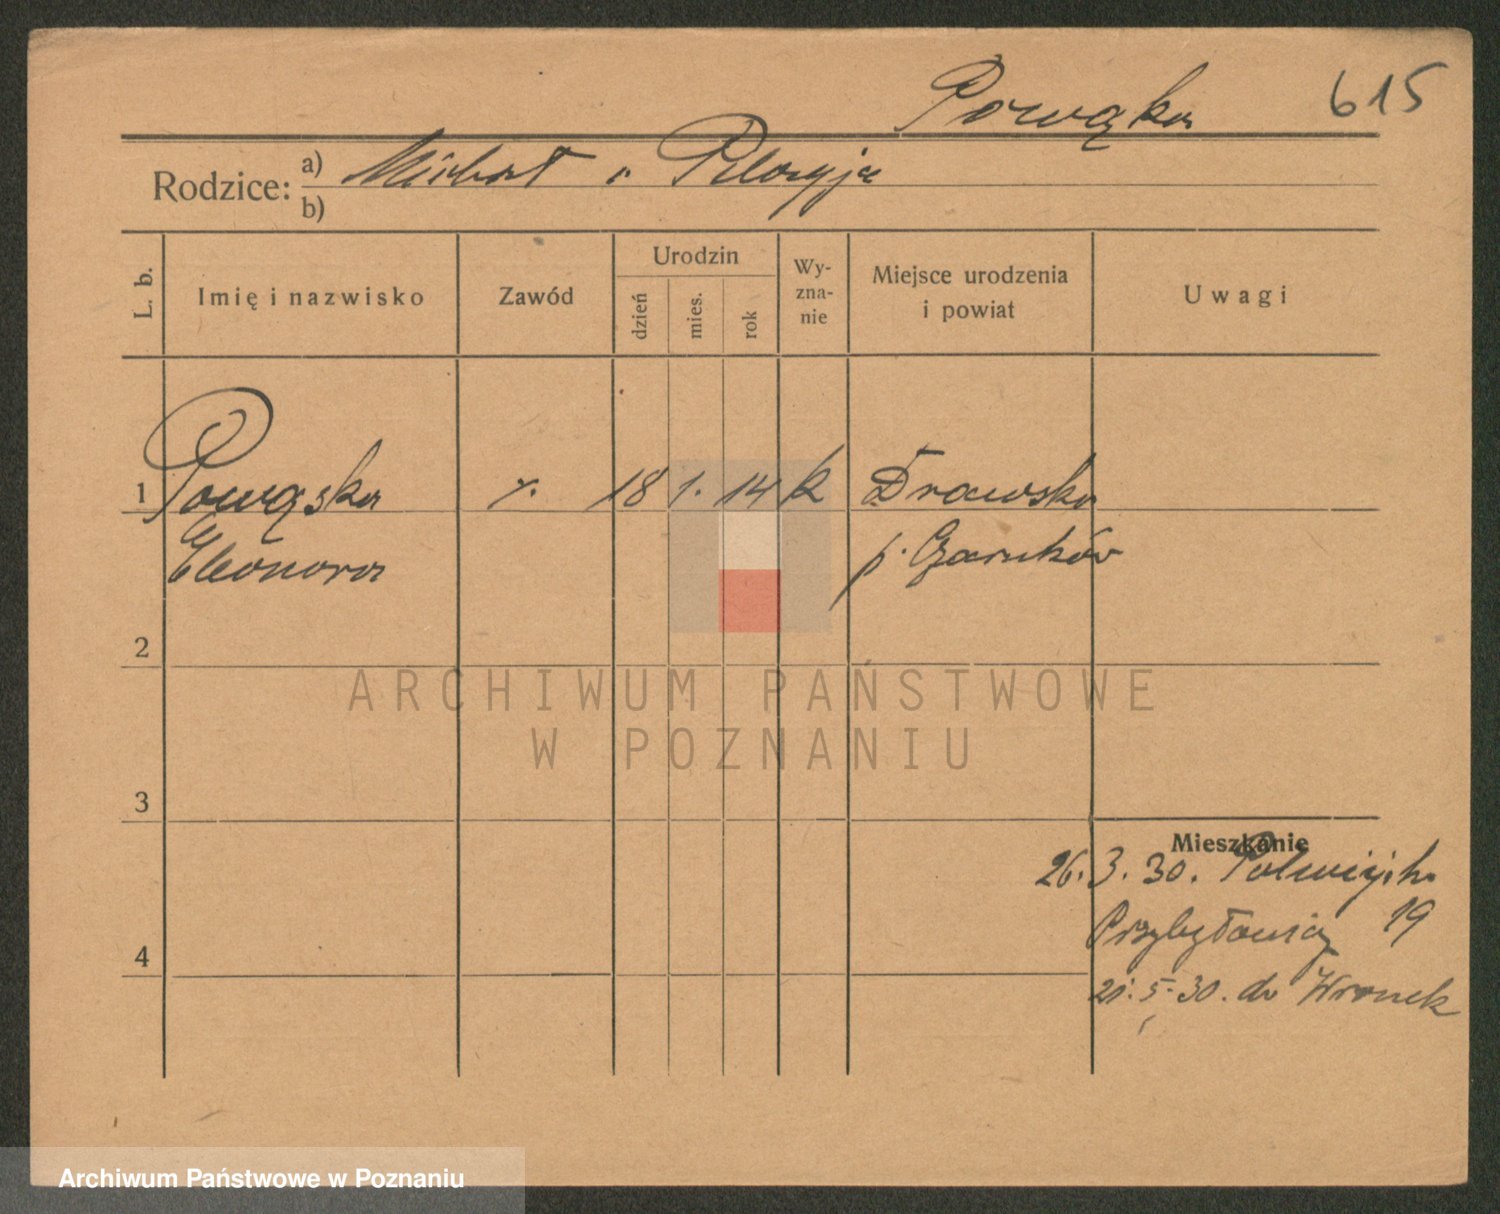 Powąska 615
Rodzice: a) Michał i Pelagja
b)
L. b.
Imię i nazwisko
Zawód
Urodzin
dzień
mies.
rok
Wy-
zna-
nie
Miejsce urodzenia
i powiat
Uwagi
1 Powąska 18 1. 14 k Drawsko
Eleonora p. Czarnków
2
3
4
Mieszkanie
26. 3. 30.
19
21. 5. 30. do Wronek
ARCHIWUM PAŃSTWOWE
W POZNANIU
Archiwum Państwowe w Poznaniu